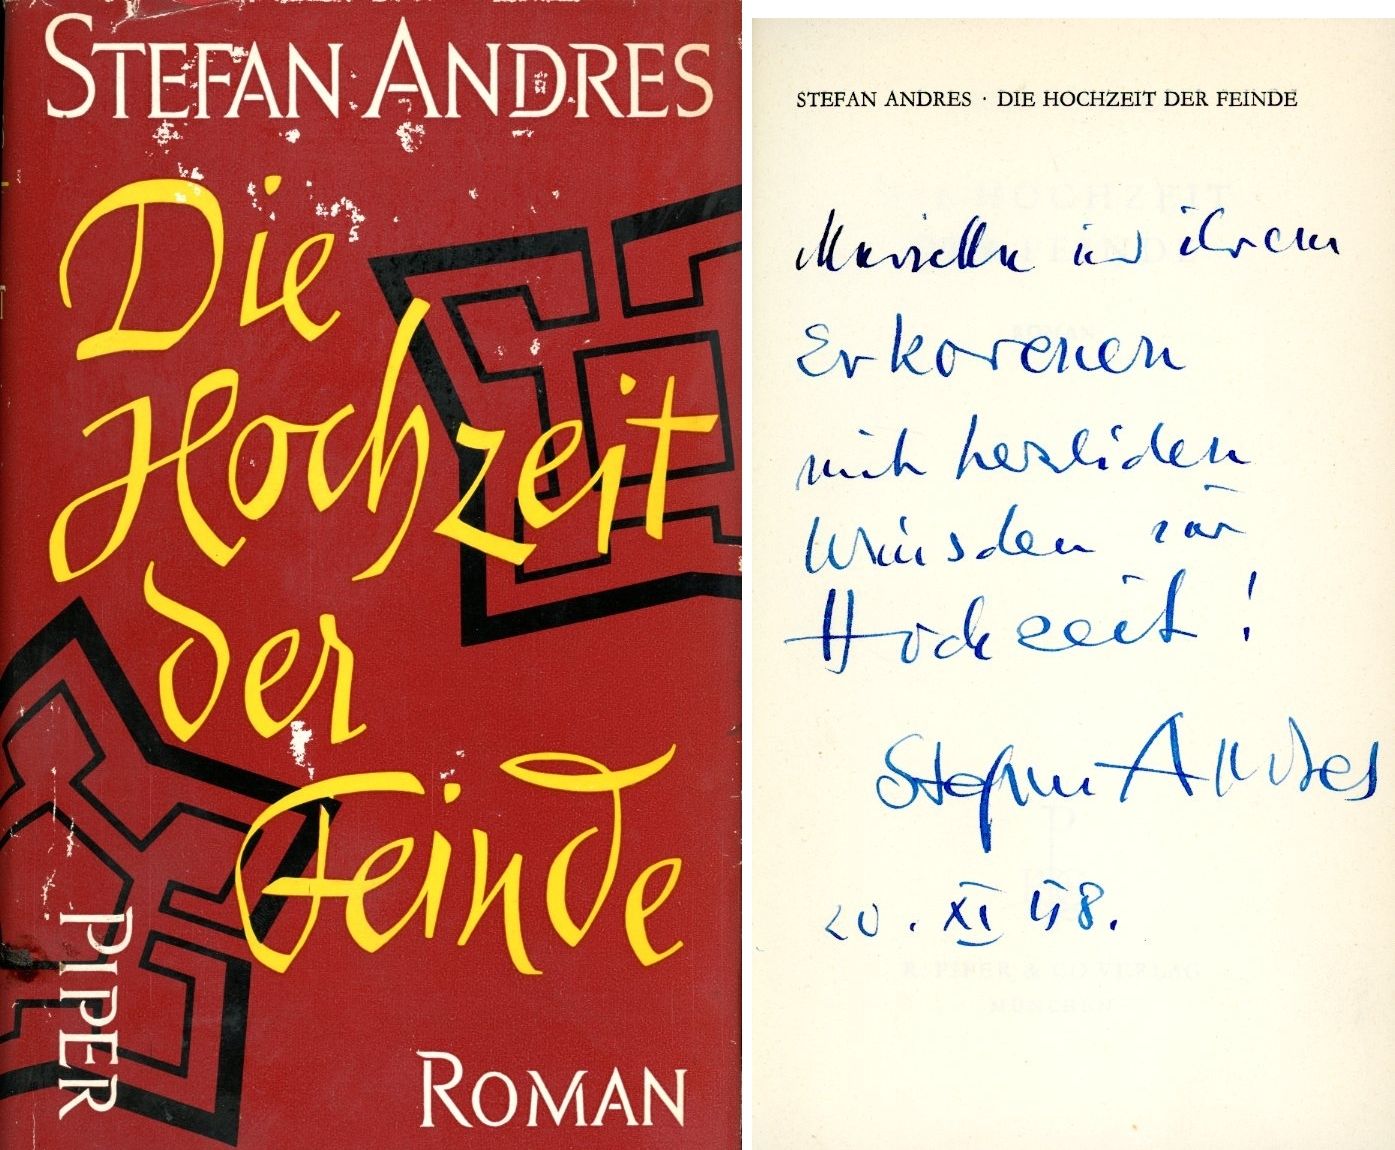 STEFAN ANDRES
Die
Hochzeit
der
Feinde
PIPER
ROMAN
STEFAN ANDRES · DIE HOCHZEIT DER FEINDE
ihrem
Erkorenen
mit herzlichen
Wünschen zur
Hochzeit!
Stefan Andres
20. XI 58.
R. PIPER & CO VERLAG
MÜNCHEN